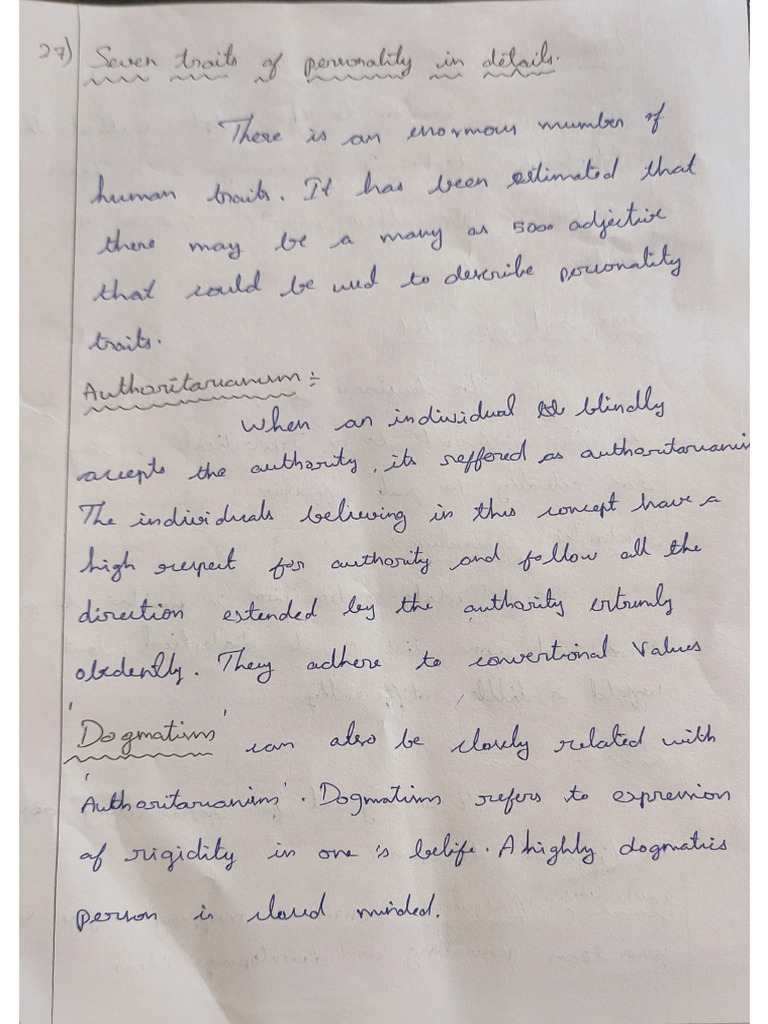 27) Seven traits of personality in details.
There is an enormous number of
human traits. It has been estimated that
there may be a many as 5000 adjective
that could be used to describe personality
traits.
Authoritarianism :-
When an individual blindly
accepts the authority, its reffored as authoritarianis
The individuals believing in this concept have a
high respect for authority and follow all the
direction extended by the authority extrumly
obedently. They adhere to conventional values
'Dogmatism' can also be closely related with
'Authoritarianism'. Dogmatism refers to expression
of rigidity in one's belife. A highly dogmatics
person is closed minded.